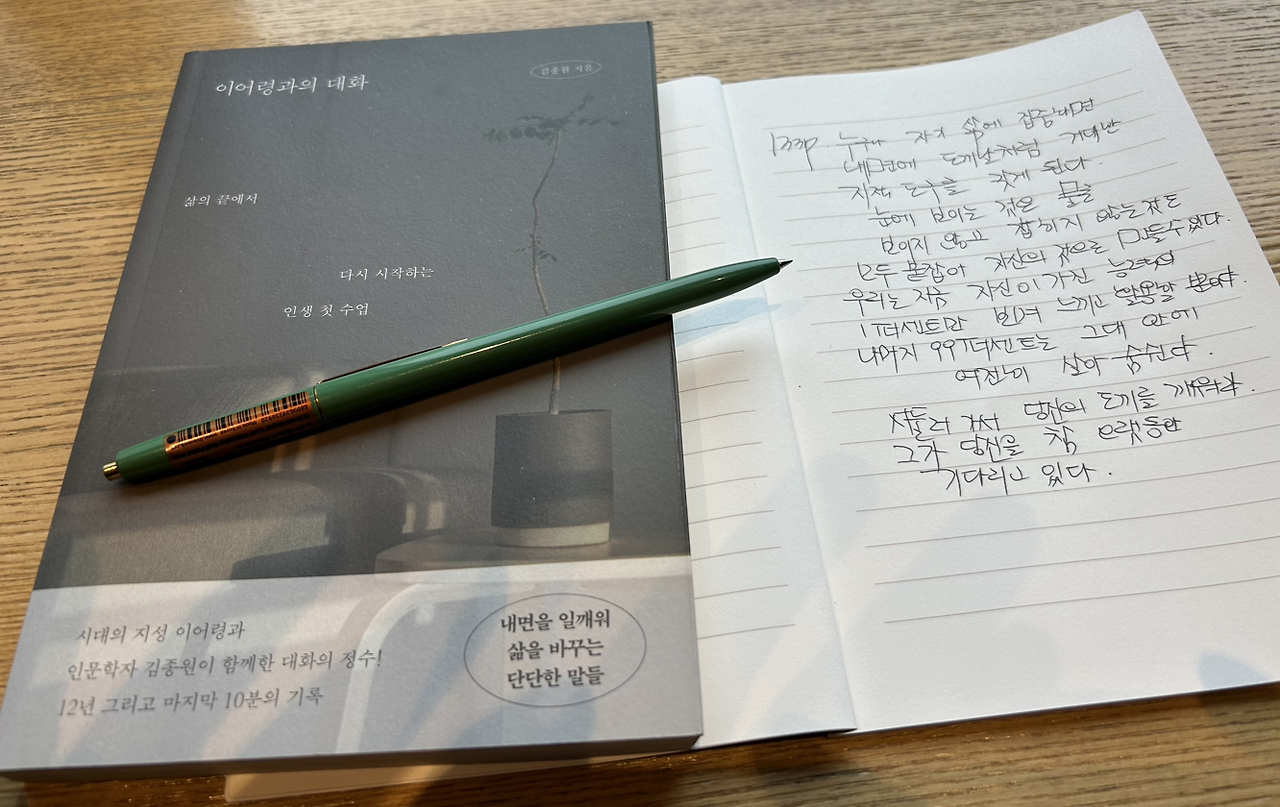 이어령과의 대화
김종원 지음
삶의 끝에서
다시 시작하는
인생 첫 수업
시대의 지성 이어령과
인문학자 김종원이 함께한 대화의 정수!
12년 그리고 마지막 10분의 기록
내면을 일깨워
삶을 바꾸는
단단한 말들
누구나 자기 삶에 집중하면
내면에 도끼날처럼 거대한
지적 도구를 갖게 된다.
눈에 보이는 것은 물론
보이지 않고 잡히지 않는 것도
모두 붙잡아 자신의 것으로 만들 수 있다.
우리는 지금 자신이 가진 능력의
1퍼센트만 빌려 느끼고 활용할 뿐이다.
나머지 99퍼센트는 그대 안에
여전히 살아 숨쉰다.
서둘러 가서 당신의 도끼를 깨워라.
그가 당신을 참 오랫동안
기다리고 있다.